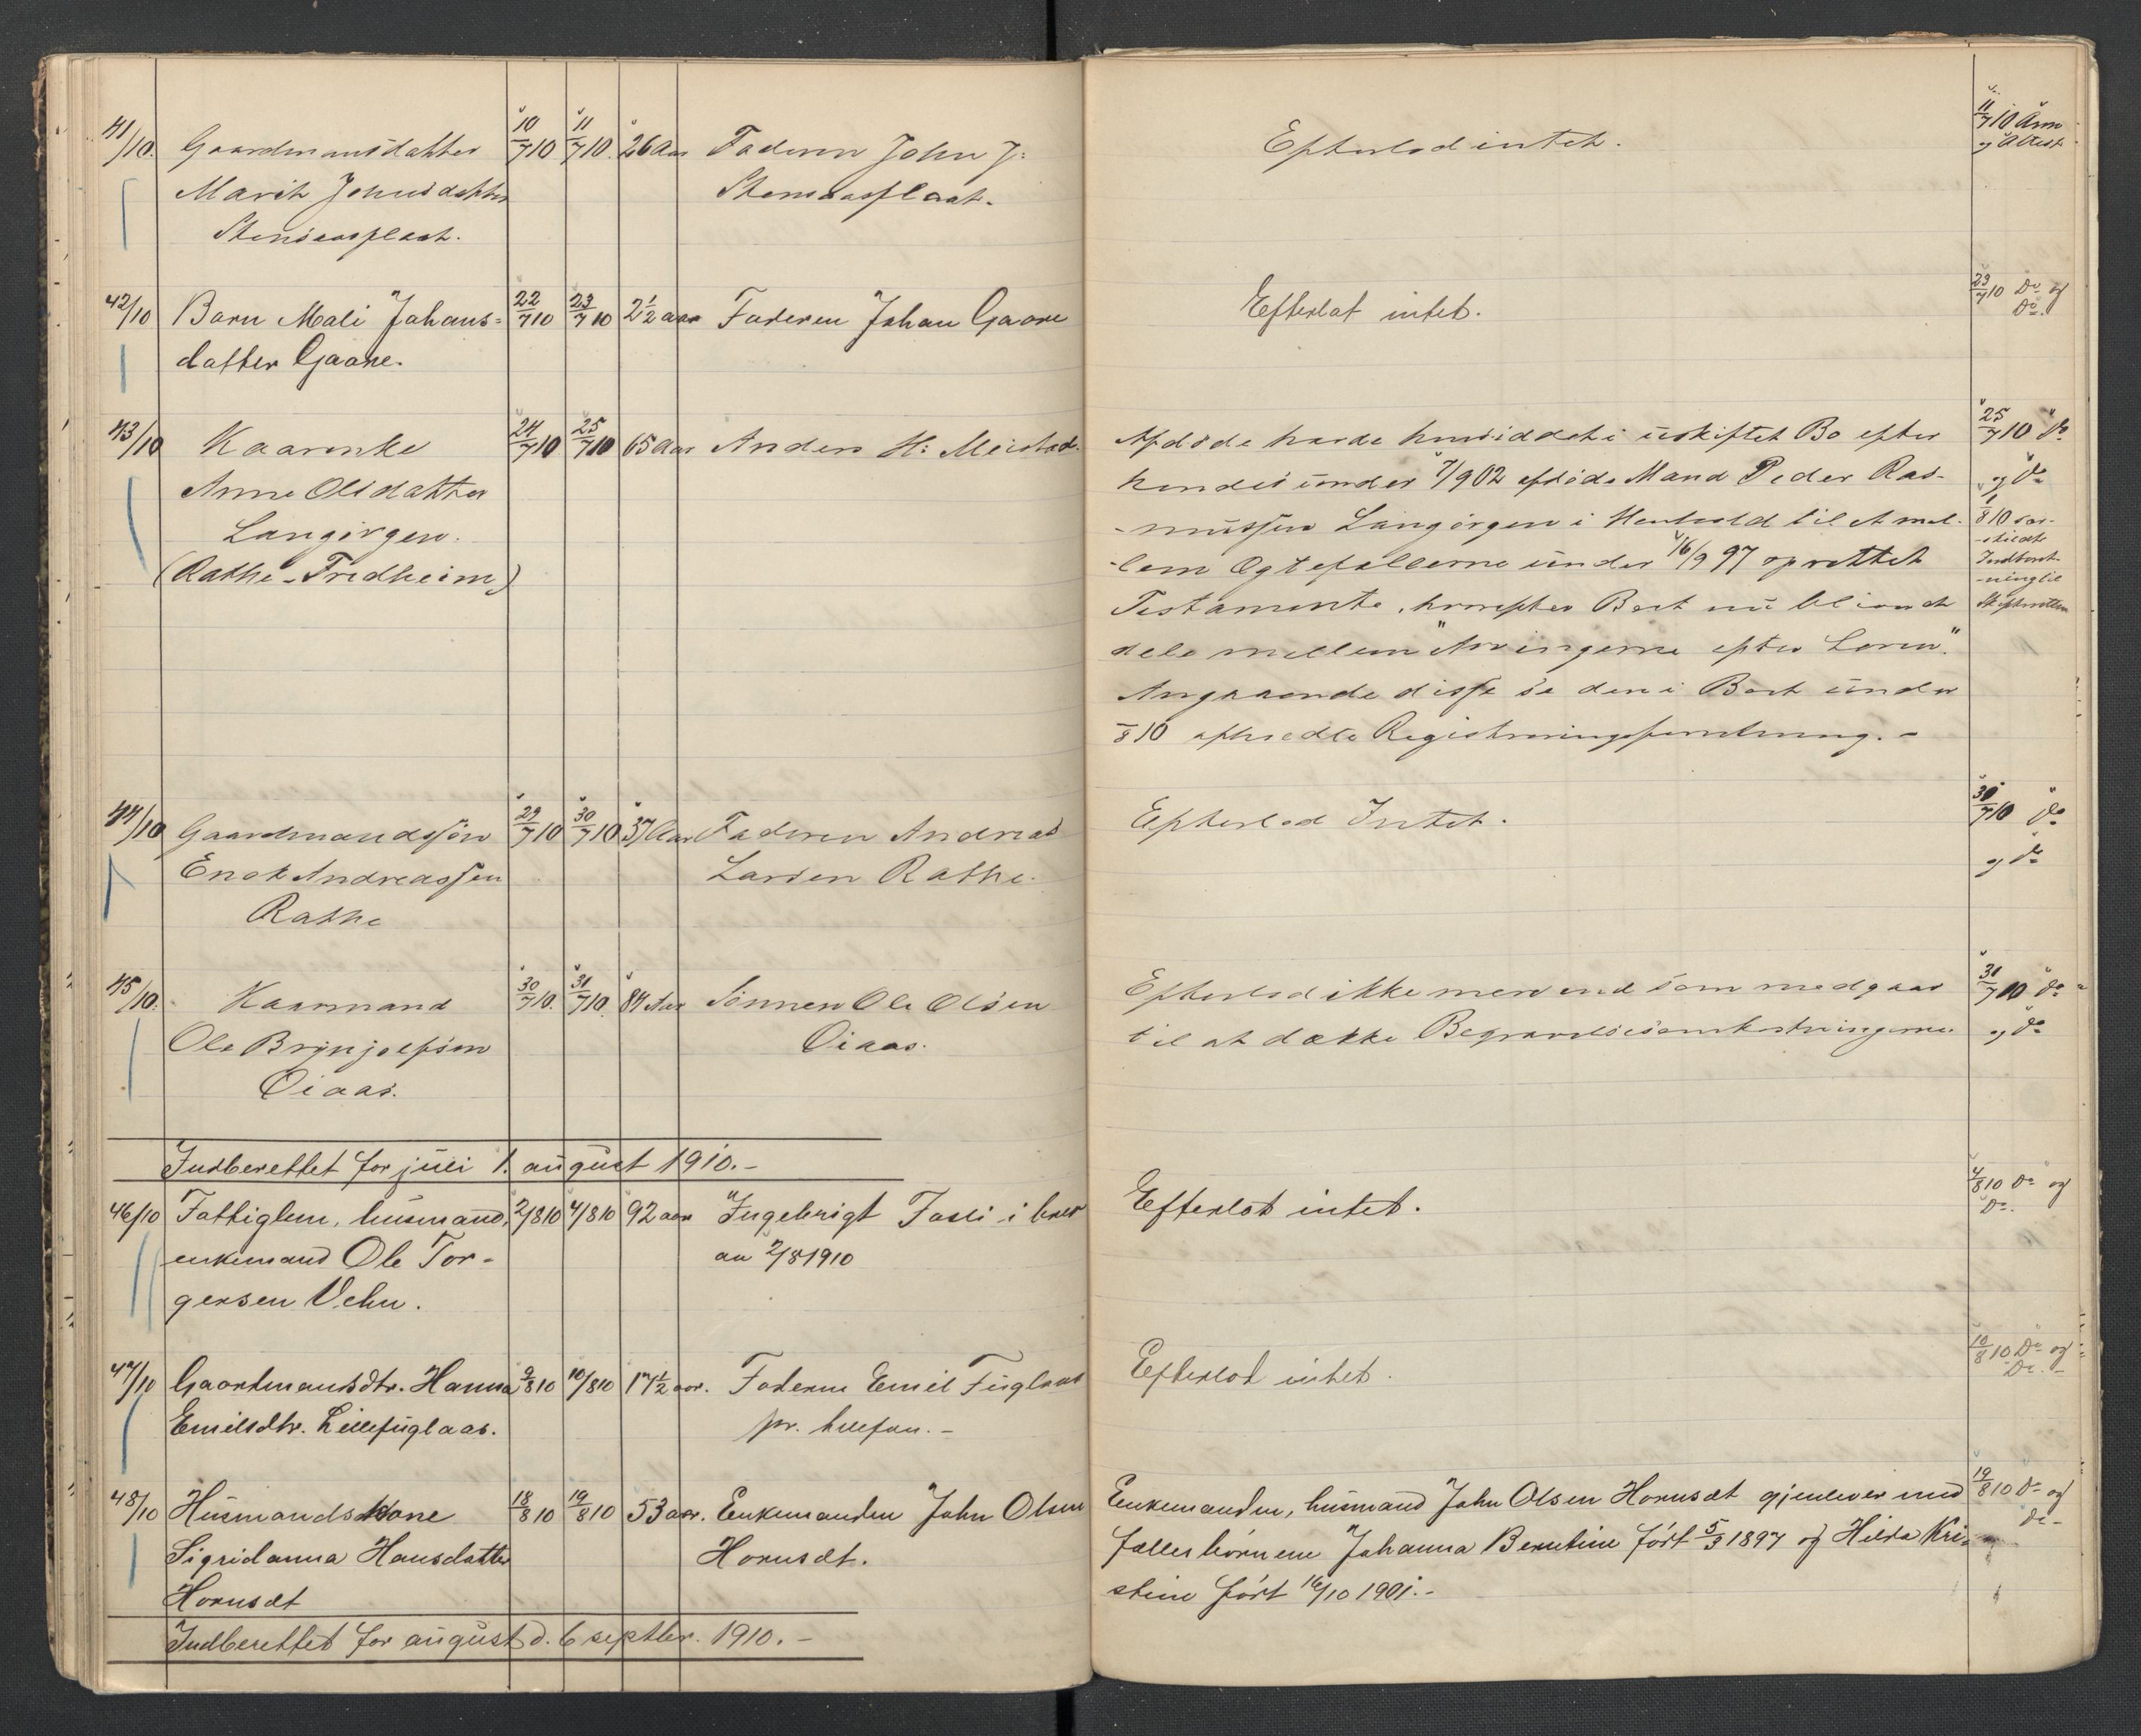 41/10. Gaardmandsdatter 10/7 10 11/7 10. 26 Aar Faderen John J: Efterlod intet. 11/7 10 Anm
Marit Johnsdatter Stensaasplads. og Attest
Stensaasplads.
42/10 Barn Mali Johans- 22/7 10 23/7 10 2½ aar Faderen Johan Gaare Efterlot intet. 23/7 10 Do og
datter Gaare. Do.
43/10 Kaarenke 24/7 10 25/7 10 65 Aar Anders H: Meistad. Afdøde havde hensiddet i uskiftet Bo efter 25/7 10 Do
Anne Olsdatter hendes under 7/9 02 afdøde Mand Peder Ras- og Do
Langørgen. -mussen Langørgen i Henhold til et mel- /8 10 sær-
(Rathe-Fredheim) -lem Ægtefællerne under 16/9 97 oprettet -skildt Indberet-
Testamente, hvorefter Boet nu bliver at -ning til Skifteretten
dele mellem "Arvingerne efter Loven".
Angaaende disse se den i Boet under
/8 10 afholdte Registreringsforretning. -
44/10 Gaardmandssøn 29/7 10 30/7 10 37 Aar Faderen Andreas Efterlod Intet. 30/7 10 Do
Enok Andreassen Larsen Rathe. og Do
Rathe
45/10. Kaarmand 30/7 10. 31/7 10. 84 Aar Sønnen Ole Olsen Efterlod ikke mer end som medgaar 31/7 10 Do
Ole Brynjolfsen Oiaas. til at dække Begravelsesomkostningerne og Do
Oiaas.
Indberettet for juli 1. august 1910. -
46/10 Fattiglem, husmand, 2/8 10 4/8 10 92 aar Ingebrigt Fasli i brev Efterlot intet. 4/8 10 Do og
enkemand Ole Tor- au 2/8 1910 Do.
gersen Vehn.
47/10 Gaardmandsdtr. Hanna 9/8 10 10/8 10 17½ aar. Faderen Emil Fuglaas Efterlot intet. 10/8 10 Do og
Emilsdtr. Lillefuglaas. pr. telefon. - Do. -
48/10 Husmandskone 18/8 10 19/8 10 53 aar. Enkemanden John Olsen Enkemanden, husmand John Olsen Hornsæt gjenlever med 19/8 10 Do og
Sigridanna Hansdatter Hornsæt. fællesbørnene Johanna Berntine født 5/3 1897 og Hilda Kri- Do -
Hornsæt stine født 16/10 1901. -
Indberettet for august d. 6 septbr. 1910. -